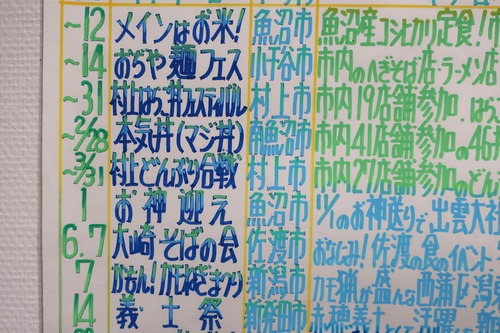 ~12 メインはお米! 魚沼市 魚沼産コシヒカリ定食!
~14 おぢや麺フェス 小千谷市 市内のへぎそば店・ラーメン店
~31 村上はらこ丼フェスティバル 村上市 市内19店舗参加、はらこ
~2/28 本気丼(マジ丼) 南魚沼市 市内41店舗参加の46
~3/31 村上どんぶり合戦 村上市 市内27店舗参加のどん
1 お神迎え 魚沼市 11/1のお神送りで出雲大社
6.7 大崎そばの会 佐渡市 おなじみ!佐渡の食のイベント
7 かもん!カモねぎまつり 新潟市 カモ猟が盛んな西蒲区潟
14 義士祭 新発田市